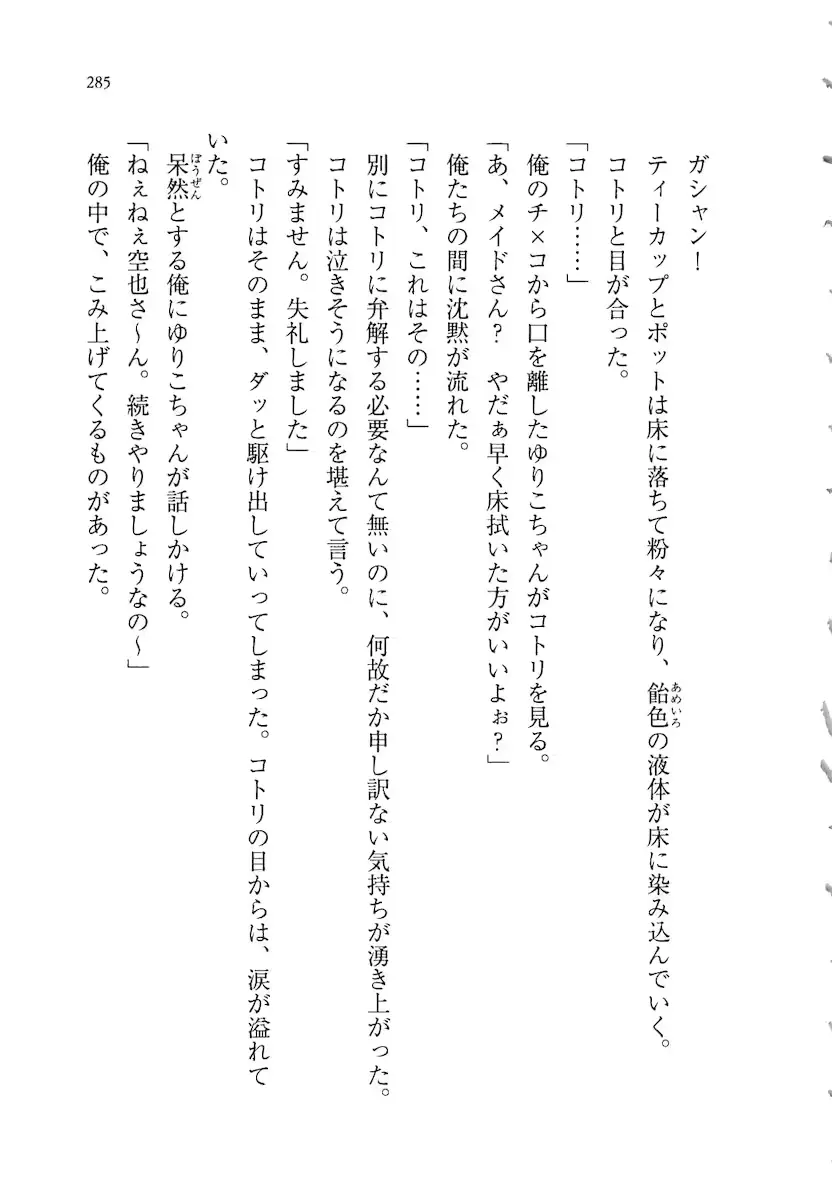 285
ガシャン！
ティーカップとポットは床に落ちて粉々になり、飴色の液体が床に染み込んでいく。
コトリと目が合った。
「コトリ……」
俺のチ×コから口を離したゆりこちゃんがコトリを見る。
「あ、メイドさん？　やだぁ早く床拭いた方がいいよぉ？」
俺たちの間に沈黙が流れた。
「コトリ、これはその……」
別にコトリに弁解する必要なんて無いのに、何故だか申し訳ない気持ちが湧き上がった。
コトリは泣きそうになるのを堪えて言う。
「すみません。失礼しました」
コトリはそのまま、ダッと駆け出していってしまった。コトリの目からは、涙が溢れて
いた。
呆然とする俺にゆりこちゃんが話しかける。
「ねぇねぇ空也さ～ん。続きやりましょうなの～」
俺の中で、こみ上げてくるものがあった。